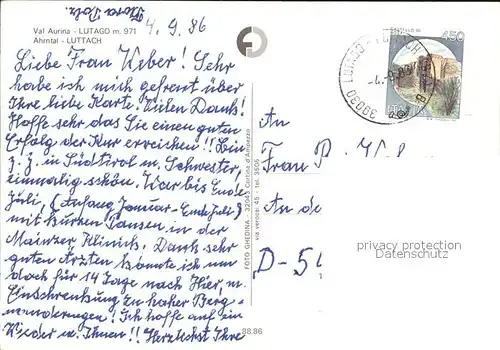 4.9.86
Val Aurina - LUTAGO m. 971
Ahrntal - LUTTACH
450
ITALIA
39030 LUTAGO
Liebe Frau Weber! Sehr
habe ich mich gefreut über
Ihre liebe Karte. Vielen Dank!
Hoffe sehr das Sie einen guten
Erfolg der Kur erreichen!! Bin
z. Z. in Südtirol m. Schwester,
einmalig schön. War bis Ende
Juli, (Anfang Januar - Ende Juli)
mit kurzen Pausen in der
Mainzer Klinik. Dank sehr
guten Ärzten konnte ich nun
doch für 14 Tage nach Hier, m.
Einschränkung zu hoher Berg-
wanderungen! Ich hoffe auf ein
Wieder m. Ihnen!! Herzlichst Ihre
FOTO GHEDINA - 32043 Cortina d'Ampezzo
via verocai 45 - tel. 3605
88.86
An
Frau P.
An de
D-54
privacy protection
Datenschutz